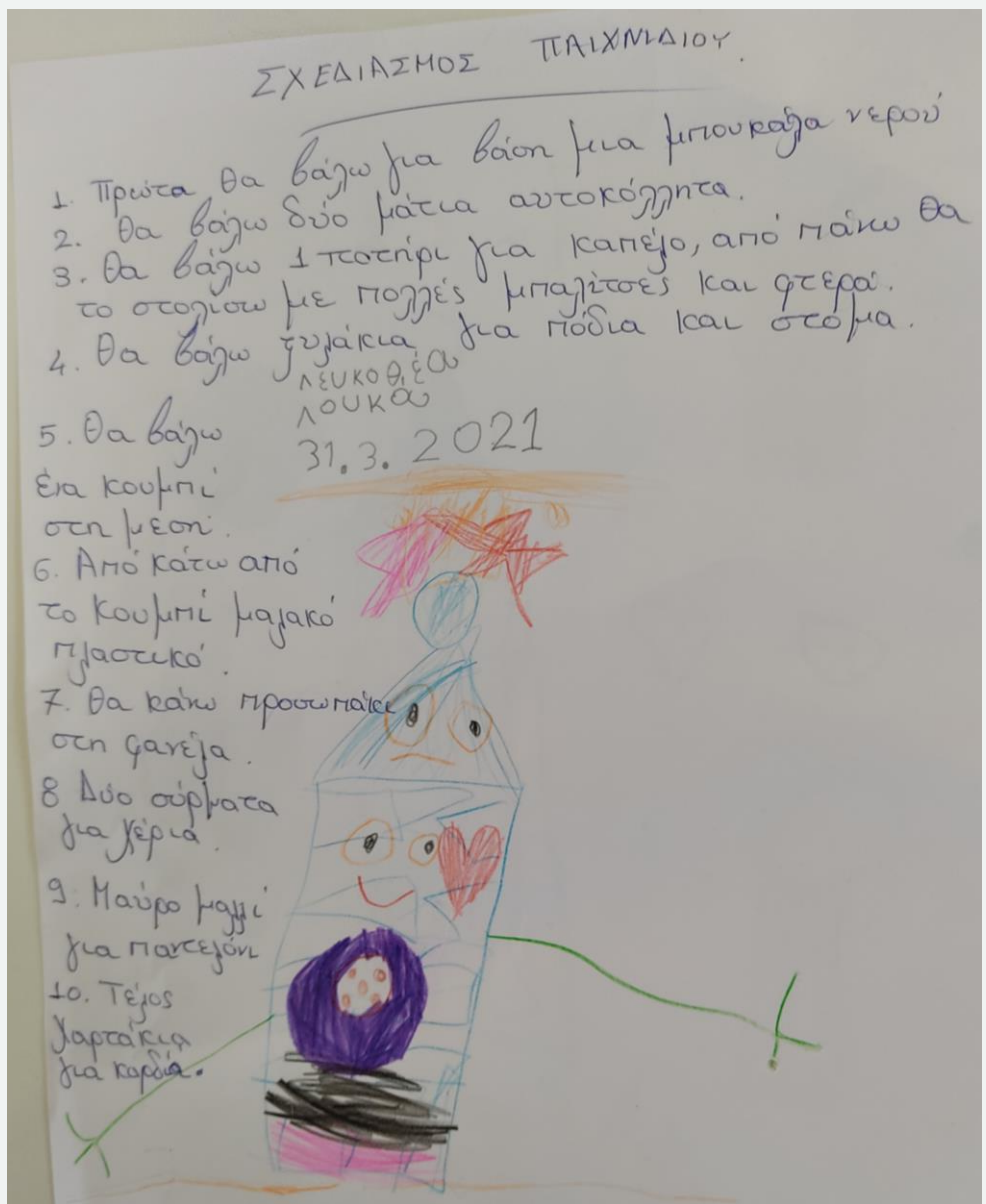 ΣΧΕΔΙΑΣΜΟΣ ΠΑΙΧΝΙΔΙΟΥ.
1. Πρώτα θα βάλω για βάση μια μπουκάλα νερού
2. Θα βάλω δύο μάτια αυτοκόλλητα.
3. Θα βάλω 1 ποτήρι για καπέλο, από πάνω θα
το στολίσω με πολλές μπαλίτσες και φτερά.
4. Θα βάλω ξυλάκια για πόδια και στόμα.
ΛΕΥΚΟΘΕΑ
ΛΟΥΚΑ
31.3.2021
5. Θα βάλω
ένα κουμπί
στη μέση.
6. Από κάτω από
το κουμπί μαλακό
πλαστικό.
7. Θα κάνω προσωπάκι
στη φανέλα.
8 Δύο σύρματα
για χέρια.
9. Μαύρο μαλλί
για παντελόνι
10. Τέλος
χαρτάκια
για καρδιά.